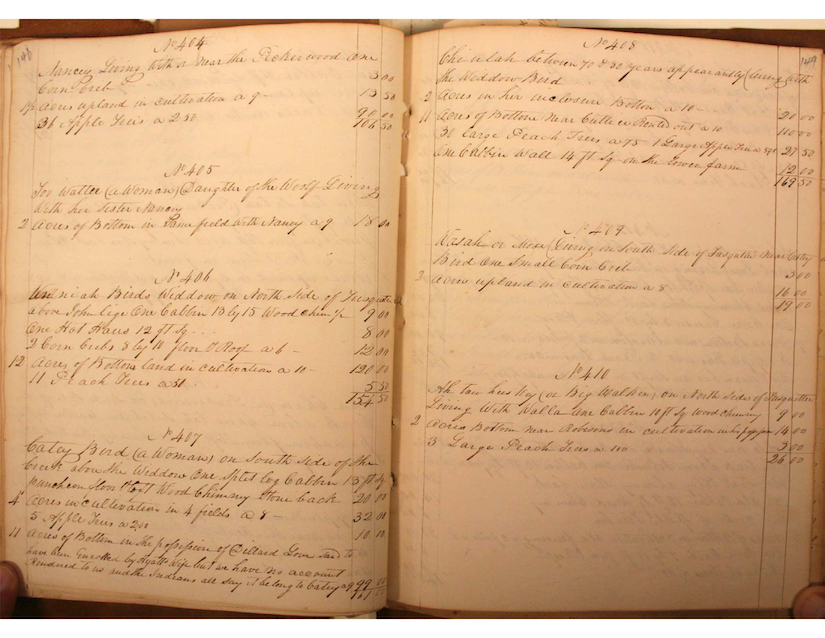 148
No 404
Nancey Living With & Near the Peckerwood One
Corn Crib 3 00
1 1/2 Acres upland in cultivation a 9 - 13 50
36 Apple Trees a 2 50 90 00
106 50
No 405
Too Wattee (a Woman) Daughter of the Woolf Living
With her Sister Nancy
2 Acres of Bottom in Same field with Nancy a 9 18 00
No 406
Birds Widdow, on North Side of Tusquitee
above John one Cabbin 13 by 15 Wood chimy 9 00
One Hot Haus 12 ft Sq - 8 00
2 Corn Cribs 8 by 10 floor & Roof a 6 - 12 00
12 Acres of Bottom land in cultivation a 10 - 120 00
11 Peach Trees a 50 5 50
154 50
No 407
Catey Bird (a Woman) on South Side of the
Creek above the Widdow One Split Log Cabbin 15 ft Sq
puncheon floor Wood Chimny Stone back 20 00
4 Acres in cultivation in 4 fields a 8 - 32 00
5 Apple Trees a 2 00 10 00
11 Acres of Bottom in the possession of Dillard Love Said to
have been Enrolled by Hyatts Wife but we have no account
Rendered to us and the Indians all say it belong to Catey a 9 99 00
161 00
149
No 408
Chi u lah between 70 & 80 years appearantly Living with
the Widdow Bird
2 Acres in her inclosure Bottom a 10 - 20 00
11 Acres of Bottom Near Rented out a 10 110 00
30 Large Peach Trees a 75 1 Large Apple Tree a 27 50
One Cabbin Wall 14 ft Sq on the lower farm 12 00
169 50
No 409
or Mose Living on South Side of Tusquitee Near Catey
Bird One Small Corn Crib 3 00
2 Acres upland in cultivation a 8 16 00
19 00
No 410
Ah taw hees ky (or Big Walker) on North Side of Tusquittee
Living With Walla One Cabbin 10 ft Sq Wood chimny 9 00
2 Acres Bottom near Robisons in cultivation 14 00
3 Large Peach Trees a 100 3 00
26 00